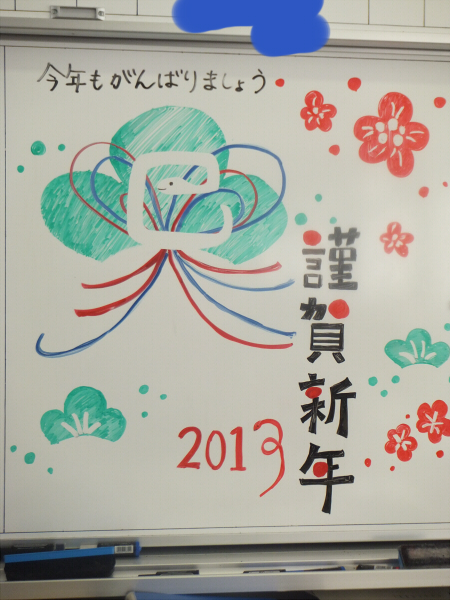 今年もがんばりましょう
謹賀新年
2013